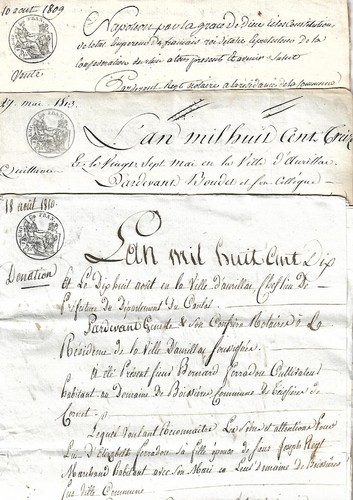 10 aout 1809
Napoleon par la grace de dieu et les Constitutions
Empereur des français roi d'italie protecteur de la
Confederation du rhin a tous presents et avenir Salut
Vente
Pardevant notaire a la résidence de la commune
27. mai 1813.
L'an mil huit Cent Treize
Quittance
Et le Vingt Sept Mai en la Ville d'Aurillac
Pardevant Boudet et son Collegue
18 août 1810.
L'an mil huit Cent Dix
Donation
Et Le Dix huit août en la Ville d'aurillac Chef lieu De
Préfecture du Département du Cantal.
Pardevant & Son Confrère Notaires à La
Résidence de la Ville D'aurillac Soussignés.
a été Présent sieur Bernard Ferradou Cultivateur
habitant au Domaine de Boissière Commune de
Lequel Voulant Reconnaitre Les Soins et attentions Pour
Lui D'Elizabeth ferradou sa fille épouse de sieur Joseph
Marchand habitant avec son Mari au Domaine de Boissières
Commune